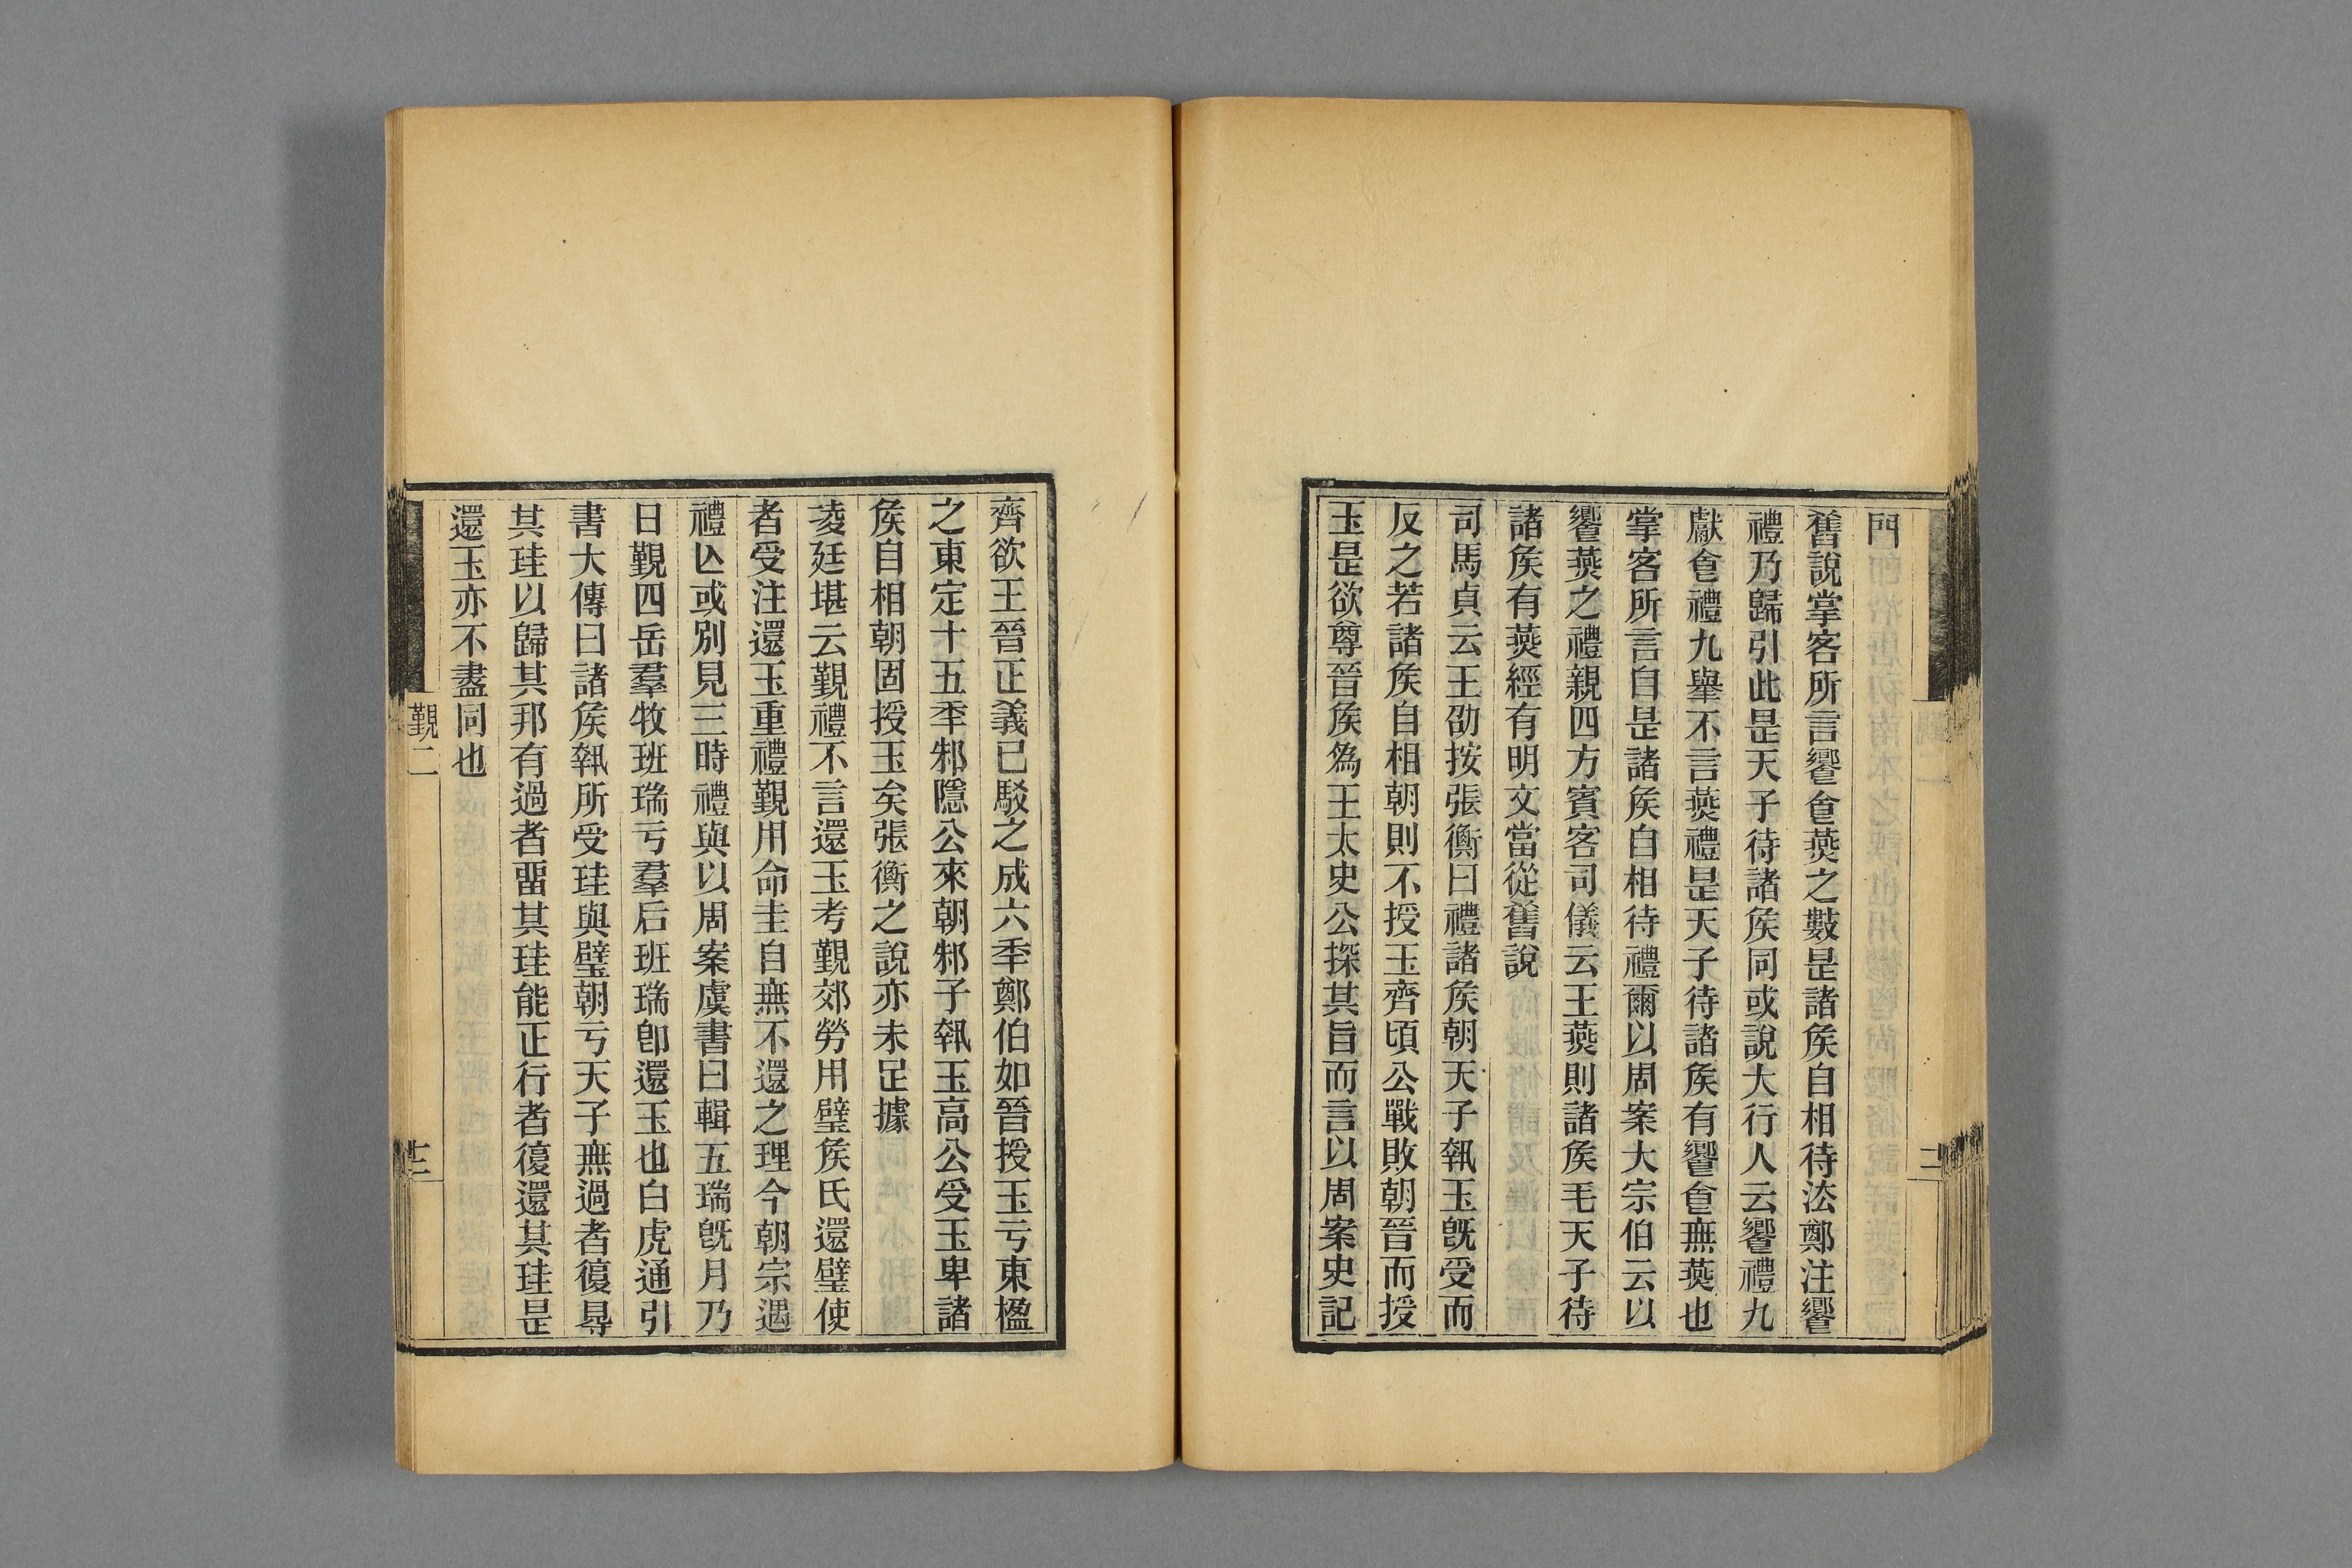 門
舊說掌客所言饗食燕之數是諸矦自相待法鄭注饗
禮乃歸引此是天子待諸矦同或說大行人云饗禮九
獻食禮九舉不言燕禮是天子待諸矦有饗食無燕也
掌客所言自是諸矦自相待禮爾以周案大宗伯云以
饗燕之禮親四方賓客司儀云王燕則諸矦毛天子待
諸矦有燕經有明文當從舊說
司馬貞云王劭按張衡曰禮諸矦朝天子執玉旣受而
反之若諸矦自相朝則不授玉齊頃公戰敗朝晉而授
玉是欲尊晉矦爲王太史公探其旨而言以周案史記
齊欲王晉正義已駁之成六秊鄭伯如晉授玉亏東楹
之東定十五秊邾隱公來朝邾子執玉高公受玉卑諸
矦自相朝固授玉矣張衡之說亦未足據
淩廷堪云覲禮不言還玉考覲郊勞用璧矦氏還璧使
者受注還玉重禮覲用命圭自無不還之理今朝宗遇
禮亾或別見三時禮與以周案虞書曰輯五瑞旣月乃
日覲四岳羣牧班瑞亏羣后班瑞卽還玉也白虎通引
書大傳曰諸矦執所受珪與璧朝亏天子無過者復尋
其珪以歸其邦有過者畱其珪能正行者復還其珪是
還玉亦不盡同也
覲二
三